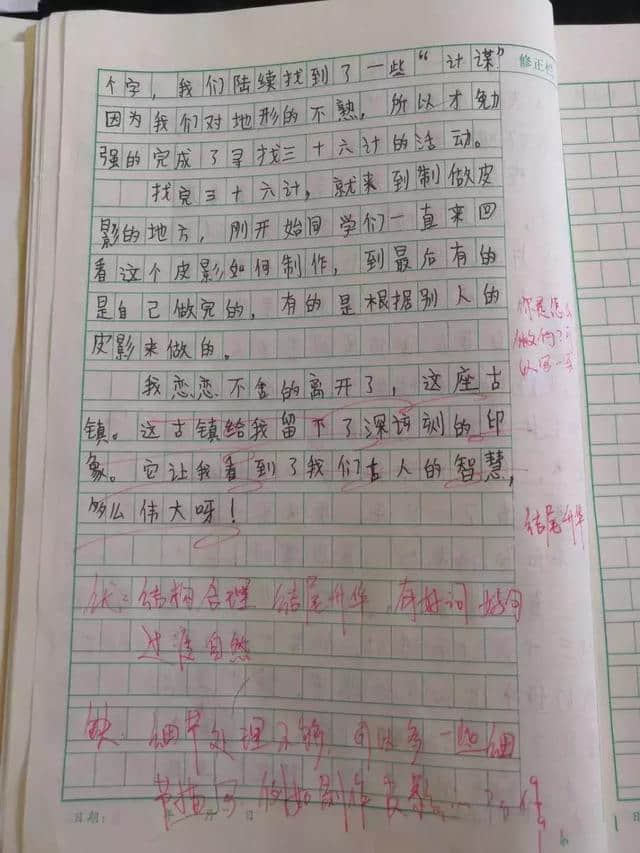 修正栏
个字，我们陆续找到了一些“计谋”
因为我们对地形的不熟，所以才勉
强的完成了寻找三十六计的活动。
找完三十六计，就来到制做皮
影的地方，刚开始同学们一直来回
看这个皮影如何制作，到最后有的
是自己做完的，有的是根据别人的
皮影来做的。
你是怎么
做的？可
以写一写
我恋恋不舍的离开了，这座古
镇。这古镇给我留下了深该刻的印
象。它让我看到了我们古人的智慧，
多么伟大呀！
结尾升华
优：结构合理 结尾升华 有好词好句
过渡自然
缺：细节处理不够，可以多一些细
节描写 例如制作皮影
日期： 月 日